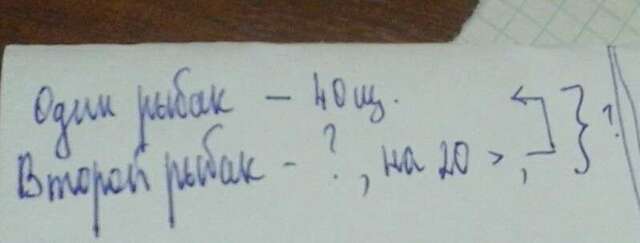 Один рыбак – 40щ.
Второй рыбак – ?, на 20 >, ?